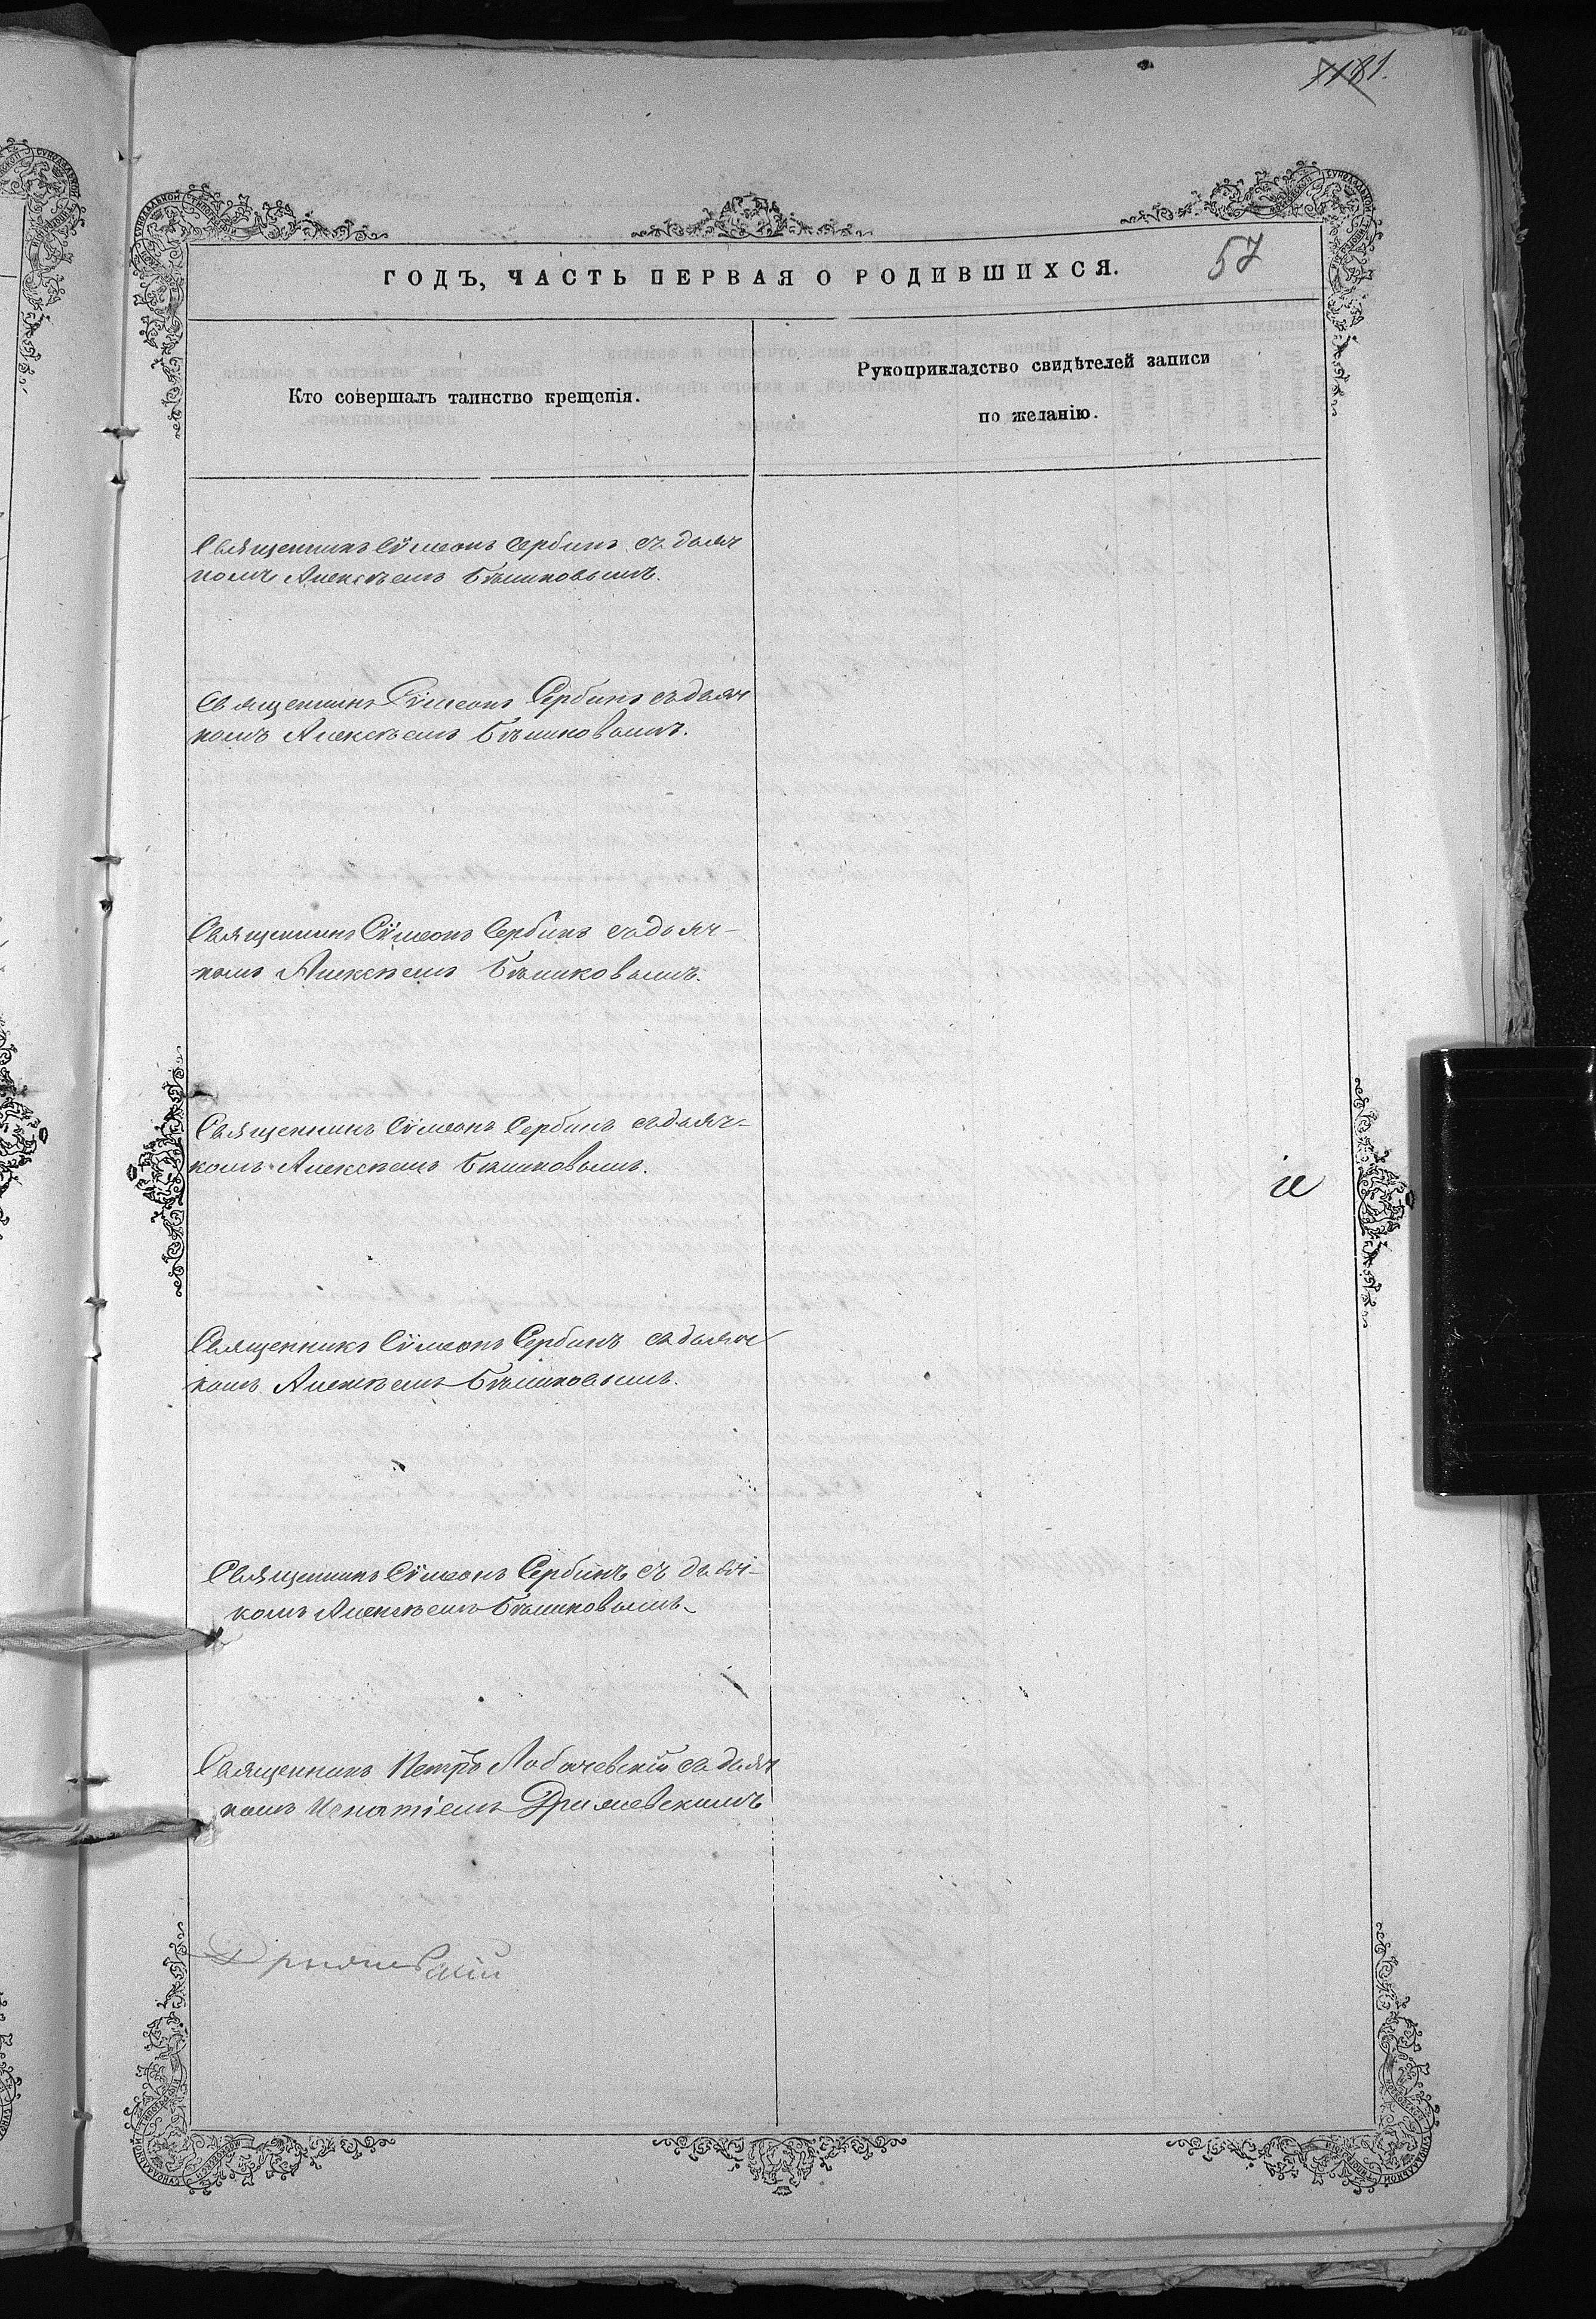 57
ГОДЪ, ЧАСТЬ ПЕРВАЯ О РОДИВШИХСЯ.
Кто совершалъ таинство крещенія.
Рукоприкладство свидѣтелей записи
по желанію.
Священникъ Сѵмеонъ Сербинъ съ дьяч
комъ Алексѣемъ Бѣликовымъ.
Священникъ Сѵмеонъ Сербинъ съ дьяч
комъ Алексѣемъ Бѣликовымъ.
Священникъ Сѵмеонъ Сербинъ съ дьяч-
комъ Алексѣемъ Бѣликовымъ.
Священникъ Сѵмеонъ Сербинъ съ дьяч-
комъ Алексѣемъ Бѣликовымъ.
Священникъ Сѵмеонъ Сербинъ съ дьяч
комъ Алексѣемъ Бѣликовымъ.
Священникъ Сѵмеонъ Сербинъ съ дьяч-
комъ Алексѣемъ Бѣликовымъ.
Священникъ Петръ Лобачевскій съ дьяч
комъ Игнатіемъ